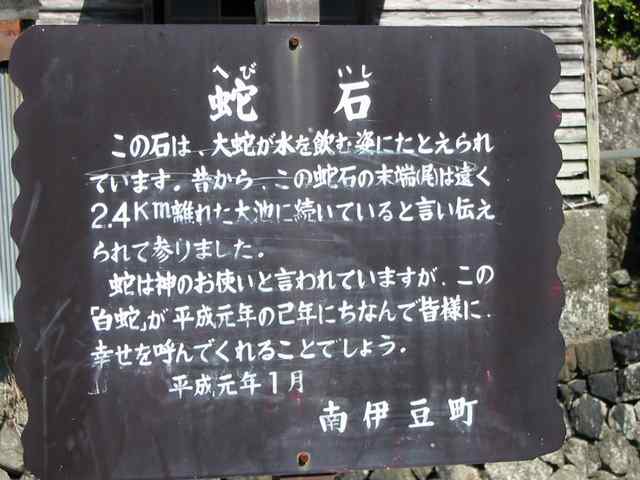 へび いし
蛇 石
この石は、大蛇が水を飲む姿にたとえられ
ています。昔から、この蛇石の末端(尾)は遠く
2.4Km離れた大池に続いていると言い伝え
られて参りました。
蛇は神のお使いと言われていますが、この
「白蛇」が平成元年の巳年にちなんで皆様に、
幸せを呼んでくれることでしょう。
平成元年1月
南伊豆町